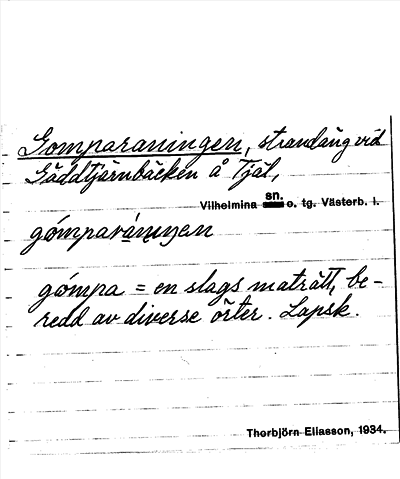 Gomparaningen, strandäng vid
Gäddtjärnbäcken å Tjäl,
sn.
Vilhelmina o. tg. Västerb. l.
gómparáningen
gómpa = en slags maträtt, be-
redd av diverse örter. Lapsk.
Thorbjörn Eliasson, 1934.